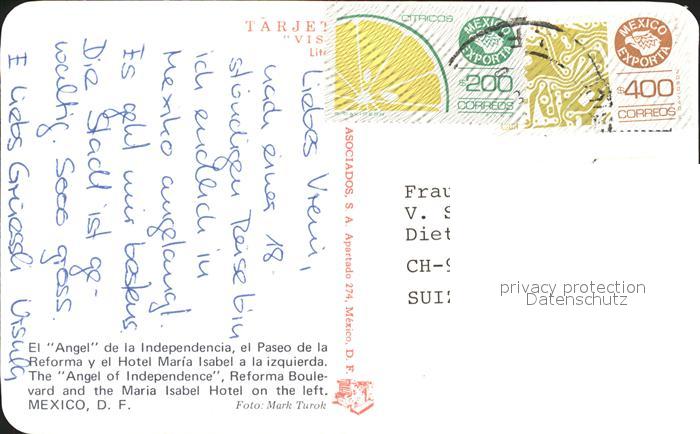 TARJET
"VIS
Lit
CITRICOS
MEXICO
EXPORTA
$200
CORREOS
MEXICO
EXPORTA
$400
CORREOS
Liebes Vreni,
nach einer 18-
stündigen Reise bin
ich endlich in
Mexiko angelangt.
Es geht mir bestens.
Die Stadt ist ge-
waltig. Sooo gross.
E liebs Grüessli Ursula
ASOCIADOS, S A. Apartado 274, México, D. F.
Frau
V. S
Diet
CH-9
SUIZ
privacy protection
Datenschutz
El "Angel" de la Independencia, el Paseo de la
Reforma y el Hotel María Isabel a la izquierda.
The "Angel of Independence", Reforma Boule-
vard and the Maria Isabel Hotel on the left.
MEXICO, D. F.
Foto: Mark Turok